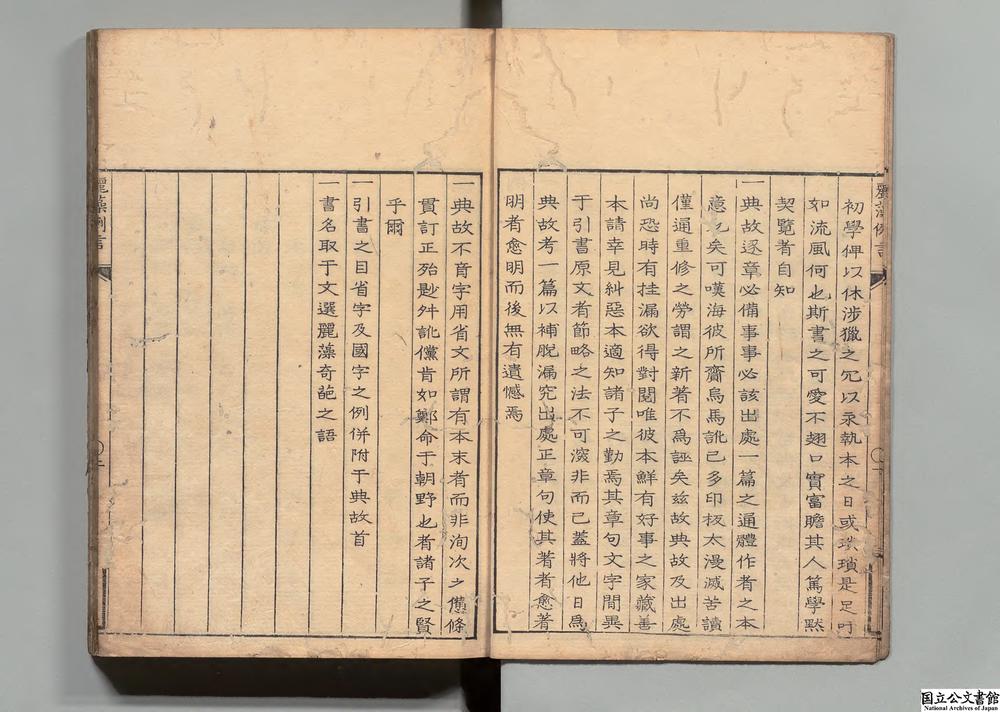 麗藻例言
初學俾以休涉獵之冗以永執本之日或瑣瑣是足吁
如流風何也斯書之可愛不翅口實富贍其人篤學默
契覽者自知
一典故逐章必備事事必該出處一篇之通體作者之本
意也矣可嘆海彼所齎烏馬訛已多印板太漫滅苦讀
僅通重修之勞謂之新著不爲誣矣玆故典故及出處
尚恐時有挂漏欲得對閱唯彼本鮮有好事之家藏善
本請幸見糾惡本適知諸子之勤焉其章句文字間異
于引書原文者節略之法不可深非而已蓋將他日爲
典故考一篇以補脫漏究出處正章句使其著者愈著
明者愈明而後無有遺憾焉
一典故不音字用省文所謂有本末者而非洵次之儔條
貫訂正殆尠舛訛儻肯如鄭命于朝野也者諸子之賢
乎爾
一引書之目省字及國字之例併附于典故首
一書名取于文選麗藻奇葩之語
麗藻例言
国立公文書館
National Archives of Japan